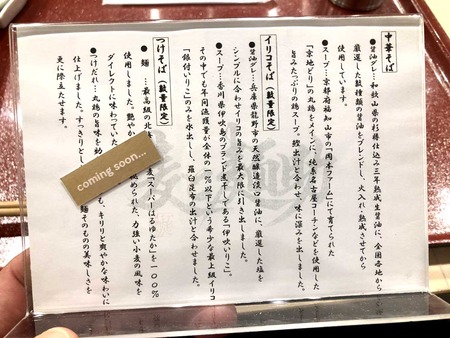 中華そば
●醤油ダレ…和歌山県の杉樽仕込み三年熟成生醤油に、全国各地から
厳選した数種類の醤油をブレンドし、火入れ、熟成させてから
使用しています。
●スープ…京都府福知山市の「岡本ファーム」にて育てられた
「京地どり」の丸鶏をメインに、純系名古屋コーチンなどを使用した
旨みたっぷりの鶏スープ。鰹出汁と合わせ、味に深みを出しました。
イリコそば（数量限定）
●醤油ダレ…兵庫県龍野市の天然醸造淡口醤油に、厳選した塩を
シンプルに合わせイリコの旨みを最大限に引き出しました。
●スープ…香川県伊吹島のブランド煮干しである「伊吹いりこ」。
その中でも年間漁獲量が全体の一％以下という希少な最上級イリコ
「銀付いりこ」のみを水出しし、羅臼昆布の出汁と合わせました。
つけそば（数量限定）
●麺…最高級の北
麦「スーパーはるゆたか」を一〇〇％
使用しました。艶やか
められた、力強い小麦の風味を
ダイレクトに味わってい
●つけだれ…丸鶏の旨味を幼
も、キリっと爽やかな味わいに
仕上げました。すっきりとし
麺そのものの美味しさを
更に際立たせます。
coming soon...